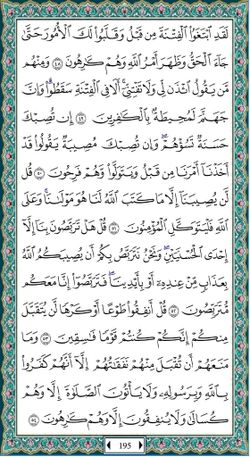 لَقَدِ ٱبْتَغَوُا۟ ٱلْفِتْنَةَ مِن قَبْلُ وَقَلَّبُوا۟ لَكَ ٱلْأُمُورَ حَتَّىٰ
جَآءَ ٱلْحَقُّ وَظَهَرَ أَمْرُ ٱللَّهِ وَهُمْ كَٰرِهُونَ ٤٨ وَمِنْهُم
مَّن يَقُولُ ٱئْذَن لِّى وَلَا تَفْتِنِّىٓ أَلَا فِى ٱلْفِتْنَةِ سَقَطُوا۟ وَإِنَّ
جَهَنَّمَ لَمُحِيطَةٌۢ بِٱلْكَٰفِرِينَ ٤٩ إِن تُصِبْكَ
حَسَنَةٌ تَسُؤْهُمْ وَإِن تُصِبْكَ مُصِيبَةٌ يَقُولُوا۟ قَدْ
أَخَذْنَآ أَمْرَنَا مِن قَبْلُ وَيَتَوَلَّوا۟ وَّهُمْ فَرِحُونَ ٥٠ قُل
لَّن يُصِيبَنَآ إِلَّا مَا كَتَبَ ٱللَّهُ لَنَا هُوَ مَوْلَىٰنَا وَعَلَى
ٱللَّهِ فَلْيَتَوَكَّلِ ٱلْمُؤْمِنُونَ ٥١ قُلْ هَلْ تَرَبَّصُونَ بِنَآ إِلَّآ
إِحْدَى ٱلْحُسْنَيَيْنِ وَنَحْنُ نَتَرَبَّصُ بِكُمْ أَن يُصِيبَكُمُ ٱللَّهُ
بِعَذَابٍ مِّنْ عِندِهِۦٓ أَوْ بِأَيْدِينَا فَتَرَبَّصُوٓا۟ إِنَّا مَعَكُم
مُّتَرَبِّصُونَ ٥٢ قُلْ أَنفِقُوا۟ طَوْعًا أَوْ كَرْهًا لَّن يُتَقَبَّلَ
مِنكُمْ إِنَّكُمْ كُنتُمْ قَوْمًا فَٰسِقِينَ ٥٣ وَمَا
مَنَعَهُمْ أَن تُقْبَلَ مِنْهُمْ نَفَقَٰتُهُمْ إِلَّآ أَنَّهُمْ كَفَرُوا۟
بِٱللَّهِ وَبِرَسُولِهِۦ وَلَا يَأْتُونَ ٱلصَّلَوٰةَ إِلَّا وَهُمْ
كُسَالَىٰ وَلَا يُنفِقُونَ إِلَّا وَهُمْ كَٰرِهُونَ ٥٤
195